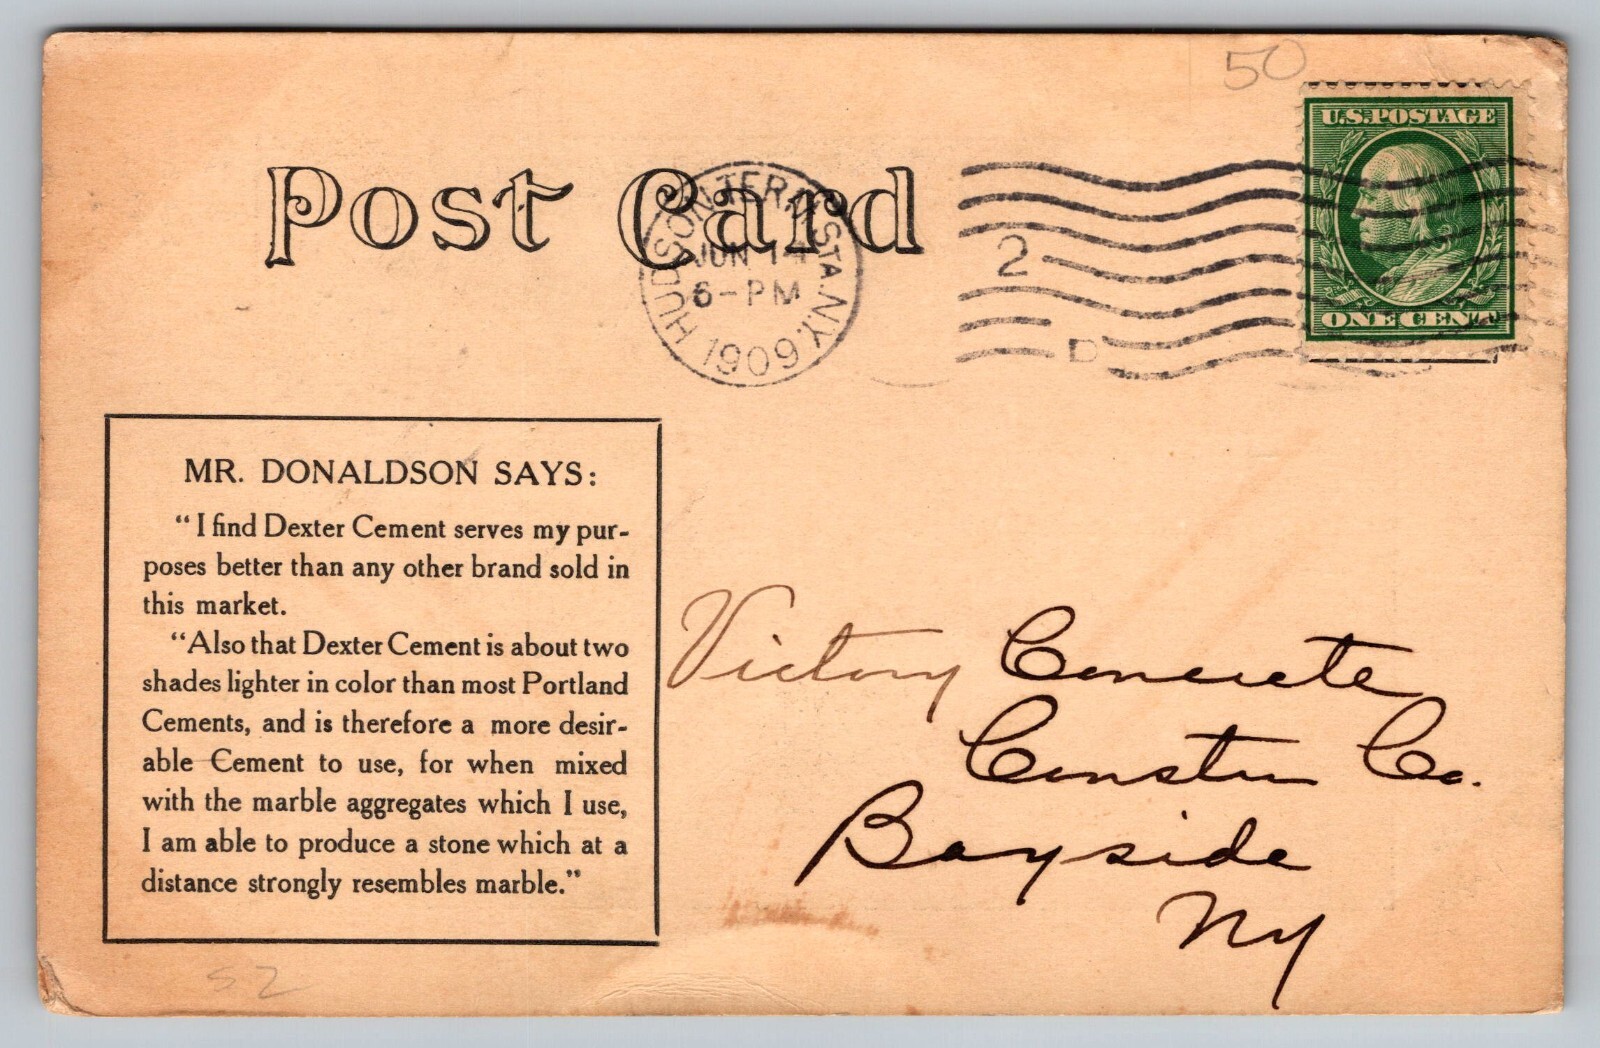 50
U.S. POSTAGE
Post Card
HUDSON TERM. STA. N.Y.
JUN 14
6-PM
1909
2
D
ONE CENT
MR. DONALDSON SAYS:
"I find Dexter Cement serves my pur-
poses better than any other brand sold in
this market.
"Also that Dexter Cement is about two
shades lighter in color than most Portland
Cements, and is therefore a more desir-
able Cement to use, for when mixed
with the marble aggregates which I use,
I am able to produce a stone which at a
distance strongly resembles marble."
Victory Concrete
Constrn Co.
Bayside
NY
52